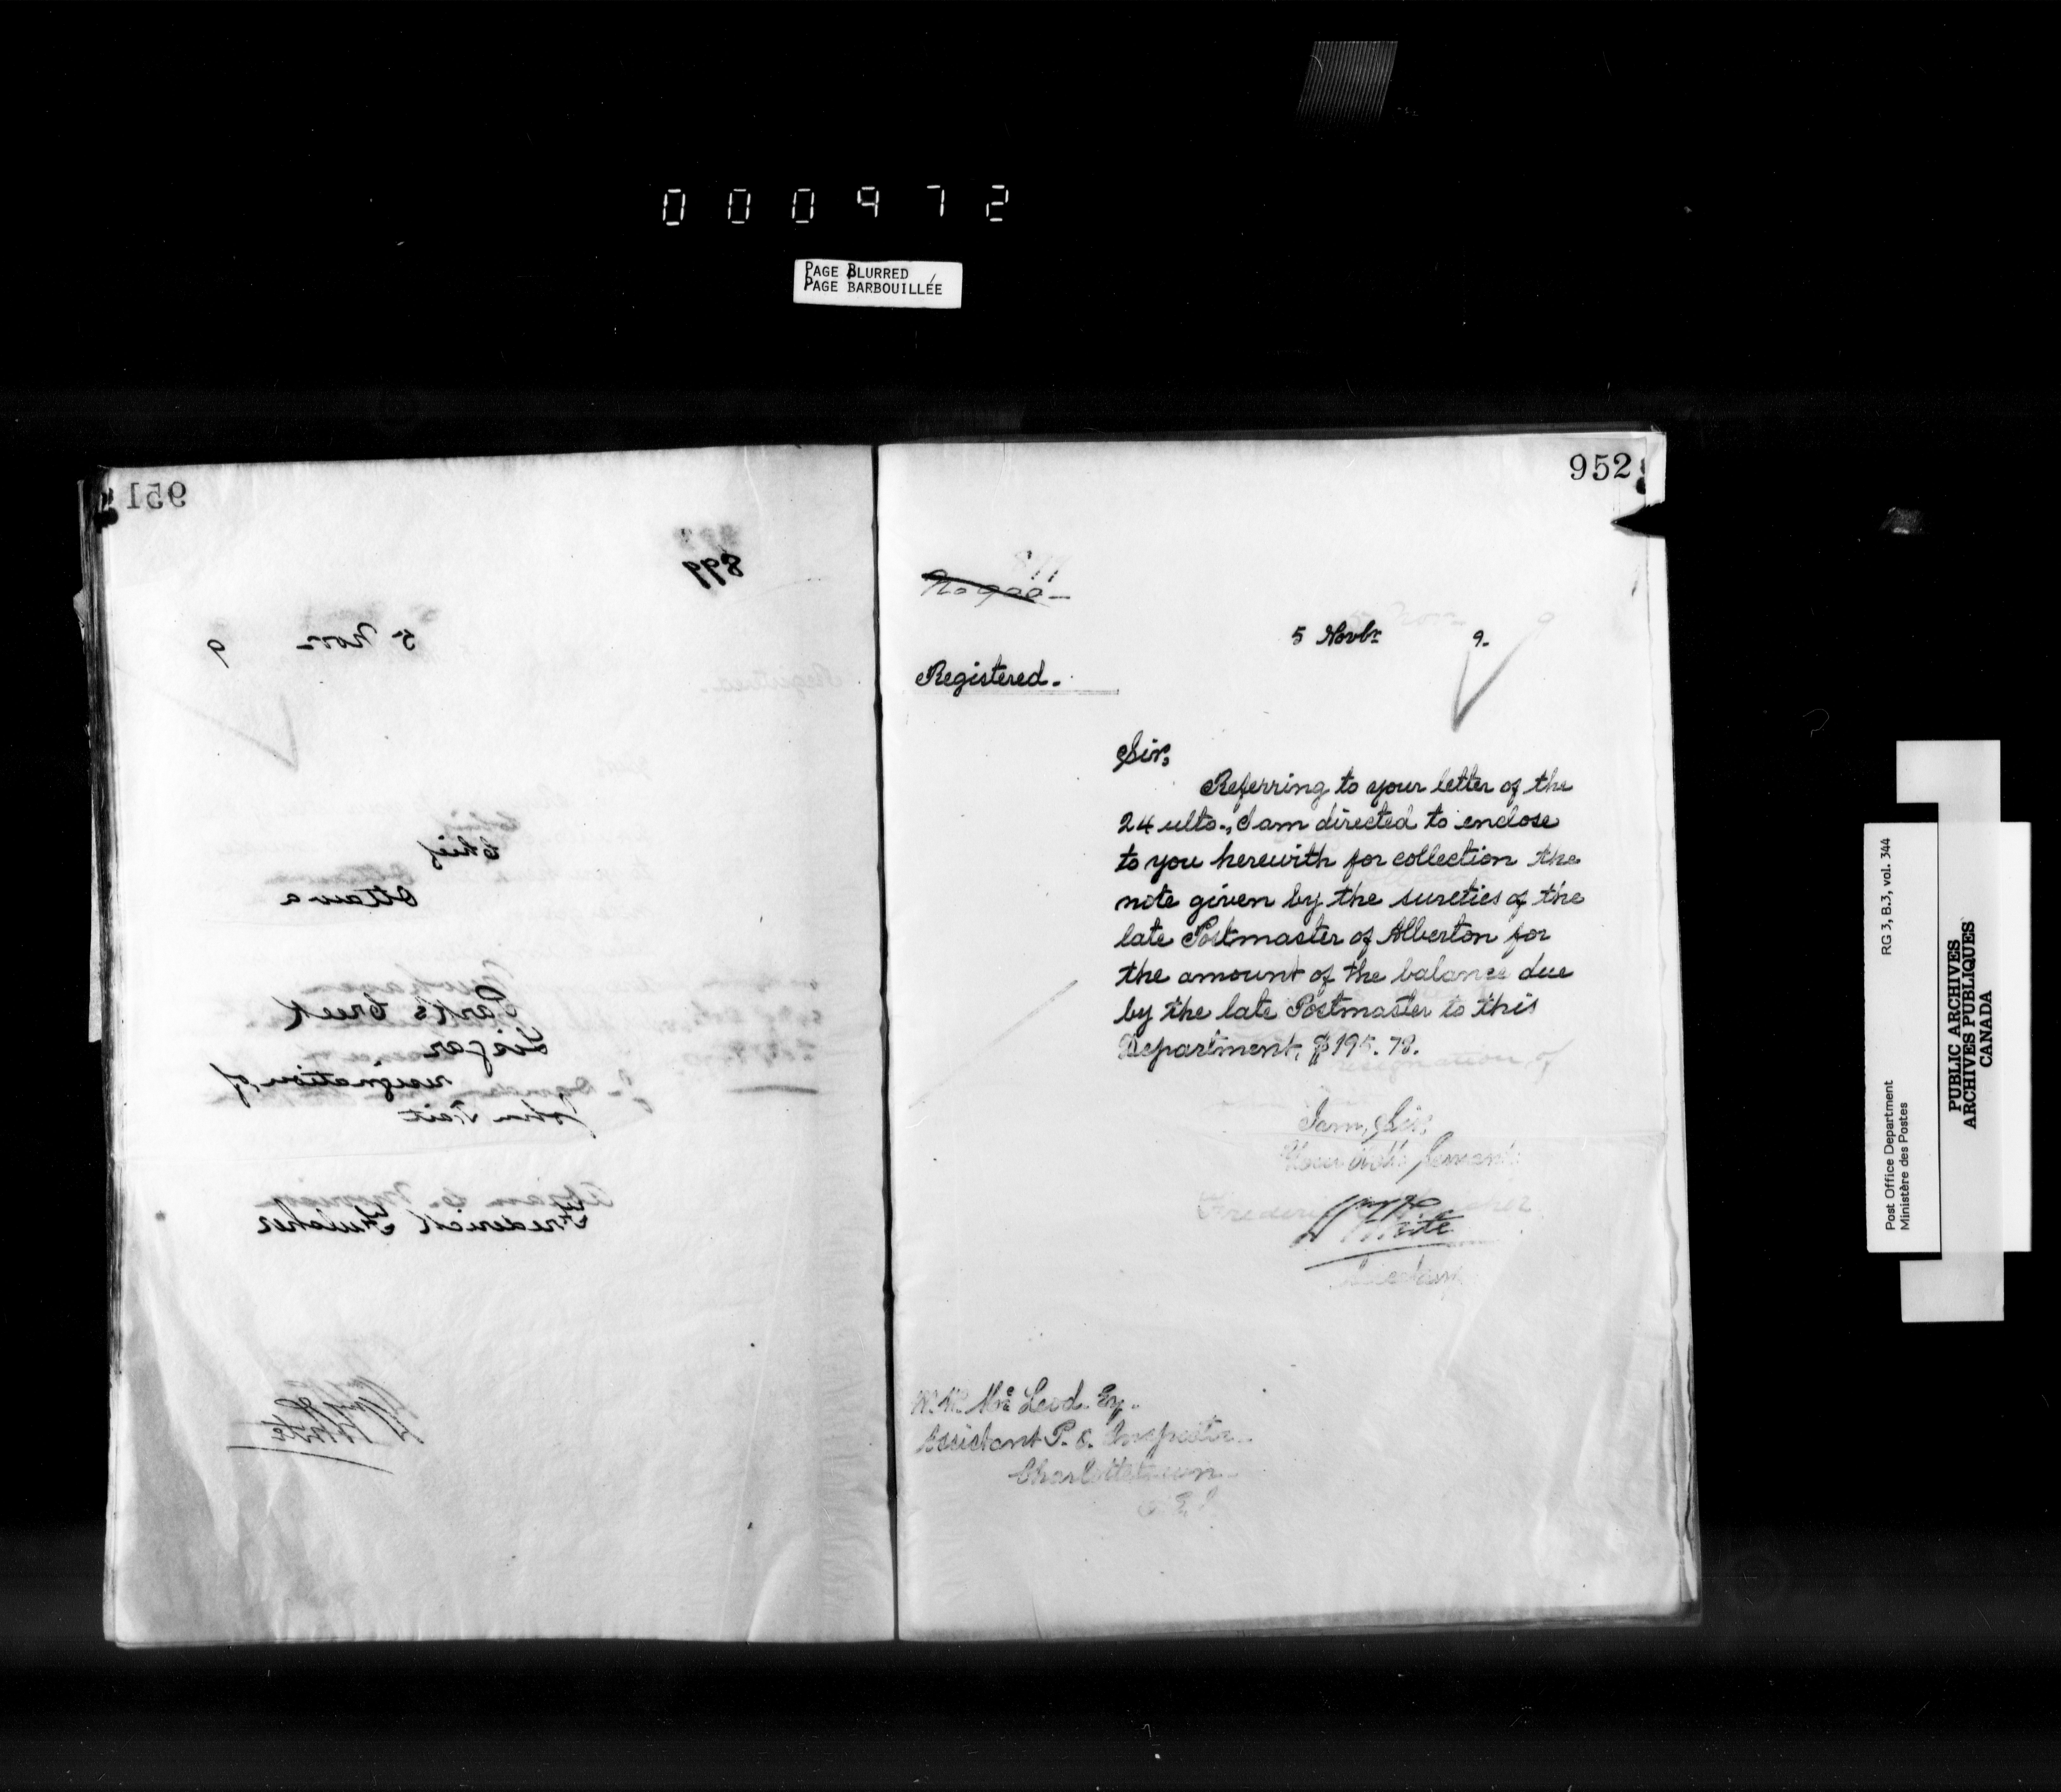 000972
PAGE BLURRED
PAGE BARBOUILLÉE
951
899
5 Nov 9
Chief
Ottawa
Park's Creek
Lisgar
resignation of
John Tait
Frederick Fulcher
White
952
899
No 900
5 Novbr 9.
Registered.
Sir,
Referring to your letter of the
24 ulto., I am directed to enclose
to you herewith for collection the
note given by the sureties of the
late Postmaster of Alberton for
the amount of the balance due
by the late Postmaster to this
Department, $195.78.
I am, Sir,
Your Servant
White
Secretary
McLeod Esq.
Assistant P. O. Inspector
Charlottetown
P E I
Post Office Department RG 3, B.3, vol. 344
Ministère des Postes
PUBLIC ARCHIVES
ARCHIVES PUBLIQUES
CANADA